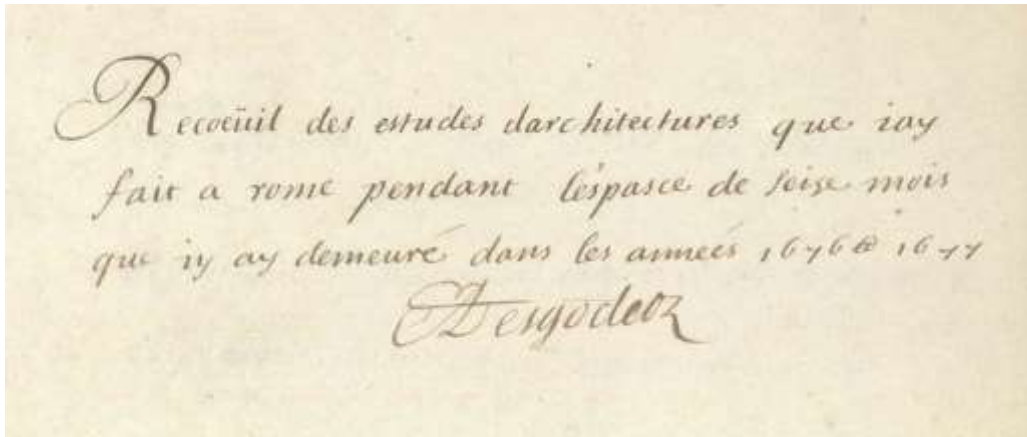 Recoëüil des estudes darchitectures que iay
fait a rome pendant léspasce de seise mois
que iy ay demeuré dans les anneés 1676 & 1677
Desgodetz